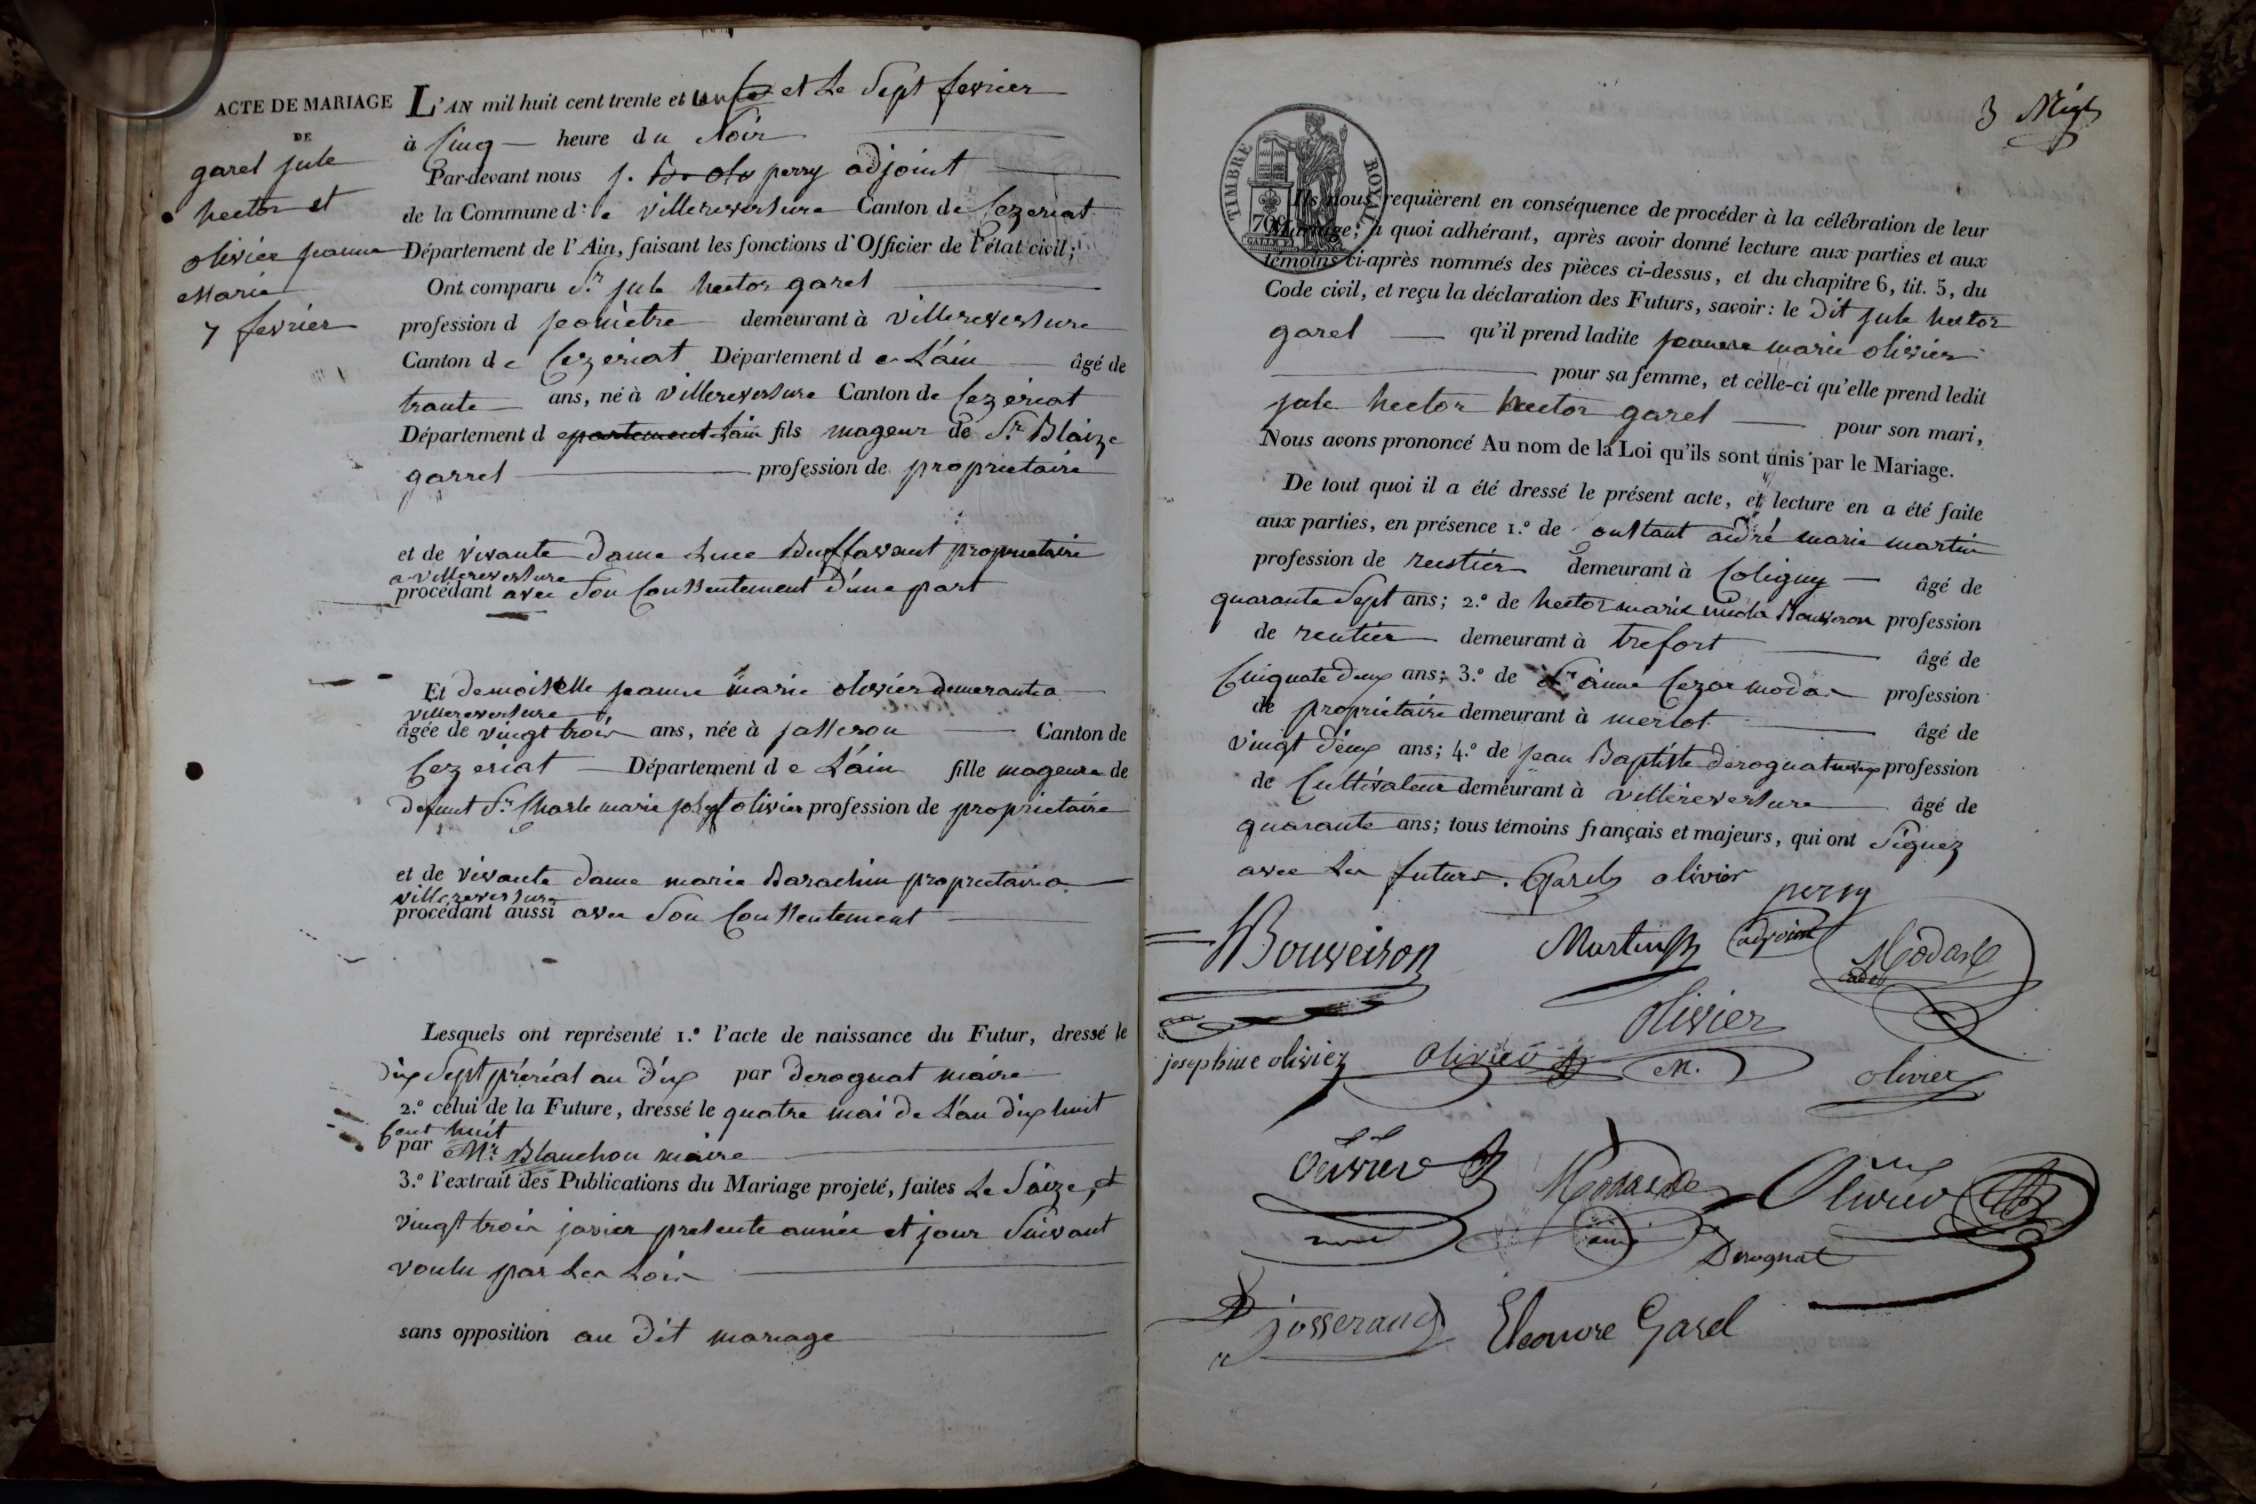 ACTE DE MARIAGE
DE
garel jule
hector et
olivier jeanne
Marie
7 fevrier
L'AN mil huit cent trente et et Le Sept fevrier
à Cinq heure du Soir
Par-devant nous j. perry adjoint
de la Commune d e villereversure Canton de Cezeriat
Département de l'Ain, faisant les fonctions d'Officier de l'état civil;
Ont comparu Sr jule hector garel
profession d jeomètre demeurant à villereversure
Canton d e Cezériat Département d e L'ain âgé de
trante ans, né à villereversure Canton de Cezériat
Département d epartement Lain fils mageur de Sr Blaize
garrel profession de proprietaire
et de vivante dame Buffavant proprietaire
a villereversure
procédant avec Son Conssentement d'une part
Et demoiselle jeanne marie olivier demeurante a
villereversure
âgée de vingt trois ans, née à jasseron Canton de
Cezeriat Département d e L'ain fille mageure de
defunt Sr Charle marie olivier profession de proprietaire
et de vivante dame marie Barachin proprietaire a
villereversure
procédant aussi avec Son Conssentement
Lesquels ont représenté 1.º l'acte de naissance du Futur, dressé le
dix Sept préréal an dix par derognat maire
2.º célui de la Future, dressé le quatre mai de L'an dix huit
Cent huit
par Mr Blanchon maire
3.º l'extrait des Publications du Mariage projeté, faites Le Saize, et
vingt trois javier presente année et jour Suivant
voulu par Les Lois
sans opposition au dit mariage
3
TIMBRE ROYAL
70
Ils nous requièrent en conséquence de procéder à la célébration de leur
Mariage; à quoi adhérant, après avoir donné lecture aux parties et aux
témoins ci-après nommés des pièces ci-dessus, et du chapitre 6, tit. 5, du
Code civil, et reçu la déclaration des Futurs, savoir: le Dit jule hector
garel qu'il prend ladite jeanne marie olivier
pour sa femme, et celle-ci qu'elle prend ledit
jule hector hector garel pour son mari,
Nous avons prononcé Au nom de la Loi qu'ils sont unis par le Mariage.
De tout quoi il a été dressé le présent acte, et lecture en a été faite
aux parties, en présence 1.º de Constant andré marie martin
profession de reintier demeurant à Coligny âgé de
quarante Sept ans; 2.º de hector marie profession
de rentier demeurant à trefort âgé de
Cinquate deux ans; 3.º de Sr aimé Cezar modas profession
de proprietaire demeurant à merlot âgé de
vingt deux ans; 4.º de jean Baptiste derognat profession
de Cultivateur demeurant à villereversure âgé de
quarante ans; tous témoins français et majeurs, qui ont Signez
avec Les futurs. Garel olivier
perry
adjoint
Bouveiron
Martin
Modas
cadet
olivier
M.
josephine olivier
Olivier
olivier
Olivier
Modas
aimé
Olivier
Derognat
josserand
Eleonore Garel